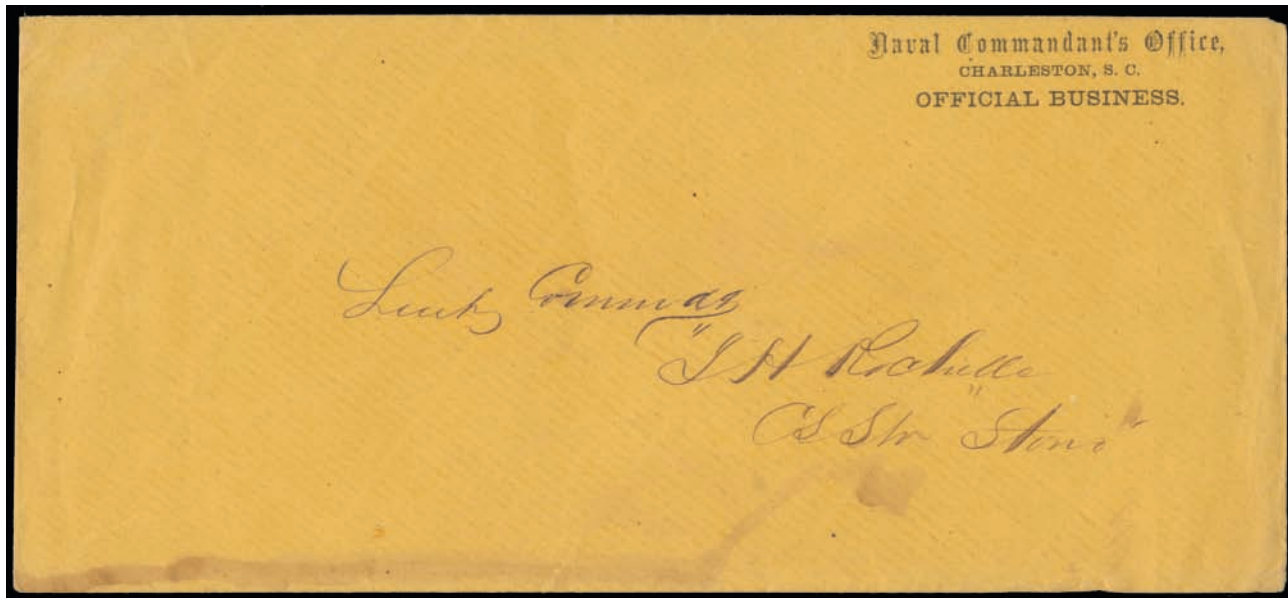 Naval Commandant's Office,
CHARLESTON, S. C.
OFFICIAL BUSINESS.
Lieut Commdg
J H Rochelle
CS Str "Stono"